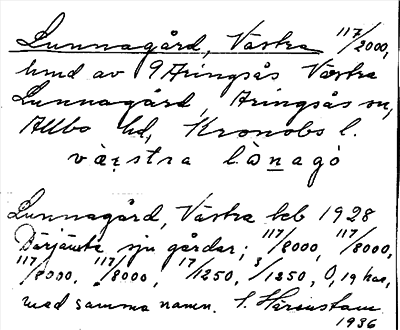 Lunnagård, Västra 117/2000,
hmd av 9 Aringsås Västra
Lunnagård, Aringsås sn,
Allbo hd, Kronobs l.
väṣtra lànagò
Lunnagård, Västra beb 1928
Därjämte sju gårdar; 117/8000, 117/8000,
117/8000, 117/8000, 17/1250, 3/1250, 0,19 har,
med samma namn. S.
1936